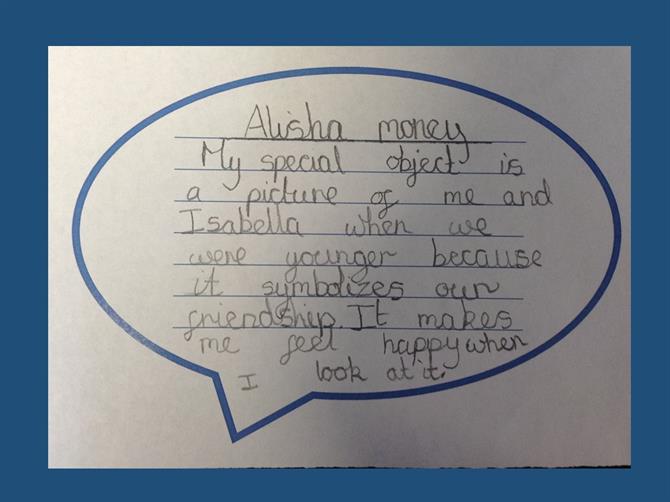 Alisha money
My special object is
a picture of me and
Isabella when we
were younger because
it symbolizes our
friendship. It makes
me feel happy when
I look at it.